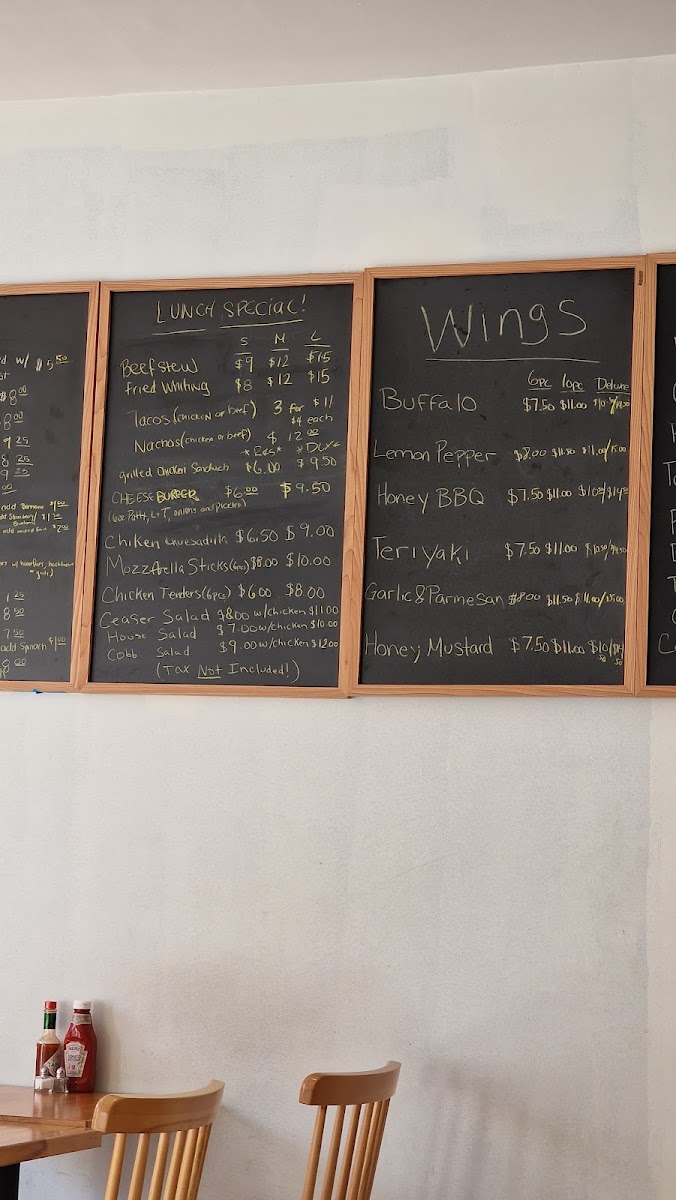 d w/ $5.50
$8.00
8.00
9.25
8.25
9
.00
1.25
8.50
7.50
add spinach $1.00
8.00
LUNCH SPECIAL!
S M L
Beef stew $9 $12 $15
fried Whiting $8 $12 $15
Tacos (chicken or beef) 3 for $11
$4 each
Nachos (chicken or beef) $12.00
*Reg* *DLX*
grilled chicken Sandwich $6.00 $9.50
CHEESE BURGER $6.00 $9.50
(6oz Patty, L+T, onions and pickles)
Chiken $6.50 $9.00
Mozzarella Sticks $8.00 $10.00
Chicken Tenders (6pc) $6.00 $8.00
Ceaser Salad $8.00 w/chicken $11.00
House Salad $7.00 w/chicken $10.00
Cobb Salad $9.00 w/chicken $12.00
(Tax Not Included!)
Wings
6pc 10pc Deluxe
Buffalo $7.50 $11.00
Lemon Pepper $8.00 $11.50 $11.00/15.00
Honey BBQ $7.50 $11.00
Teriyaki $7.50 $11.00
Garlic & Parmesan $8.00 $11.50 $11.00/15.00
Honey Mustard $7.50 $11.00